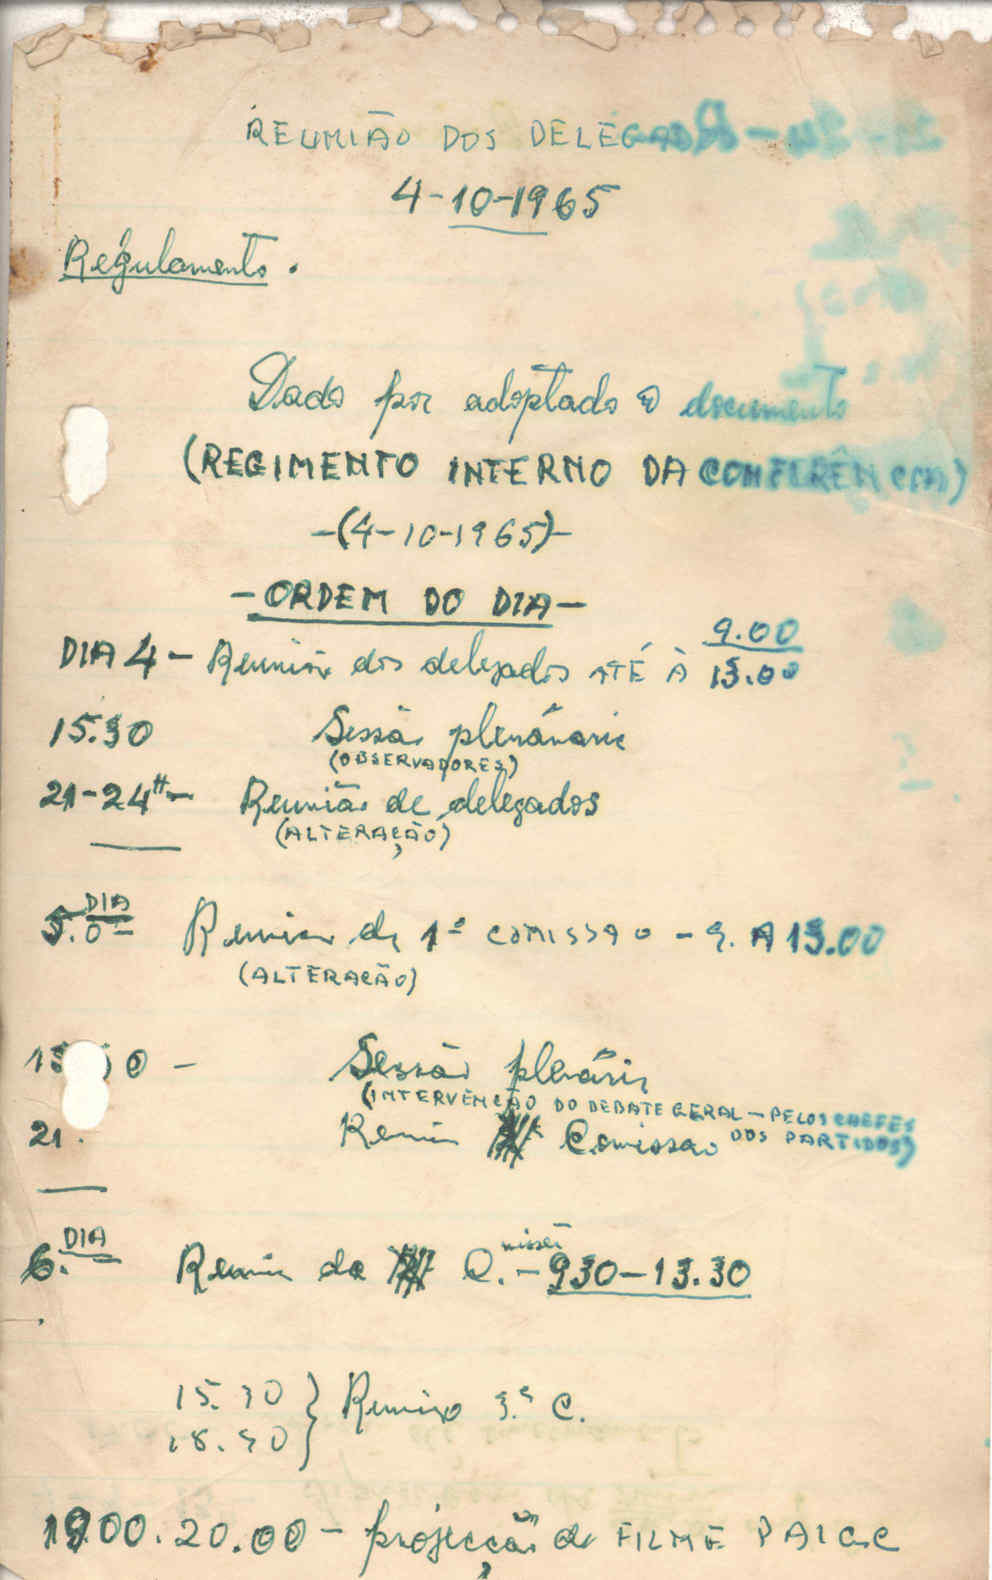 REUNIÃO DOS DELEGADOS
4-10-1965
Regulamento.
Dado por adoptado o documento
(REGIMENTO INTERNO DA CONFERÊNCIA)
-(4-10-1965)-
-ORDEM DO DIA-
9.00
DIA 4 - Reunião dos delegados ATÉ À 13.00
15.30 Sessão plenánarie
(OBSERVADORES)
21-24H- Reunião de delegados
(ALTERAÇÃO)
DIA
5.0- Reunião da 1ª COMISSÃO - 9. A 13.00
(ALTERAÇÃO)
15 30 - Sessão plenária
(INTERVENÇÃO DO DEBATE GERAL - PELOS CHEFES
DOS PARTIDOS)
21. Reunião Comissão
DIA
6. Reunião da C. missão - 930-13.30
15.30 } Reunião 3.ª C.
18.30
1900.20.00 - projecção do FILME PAIGC